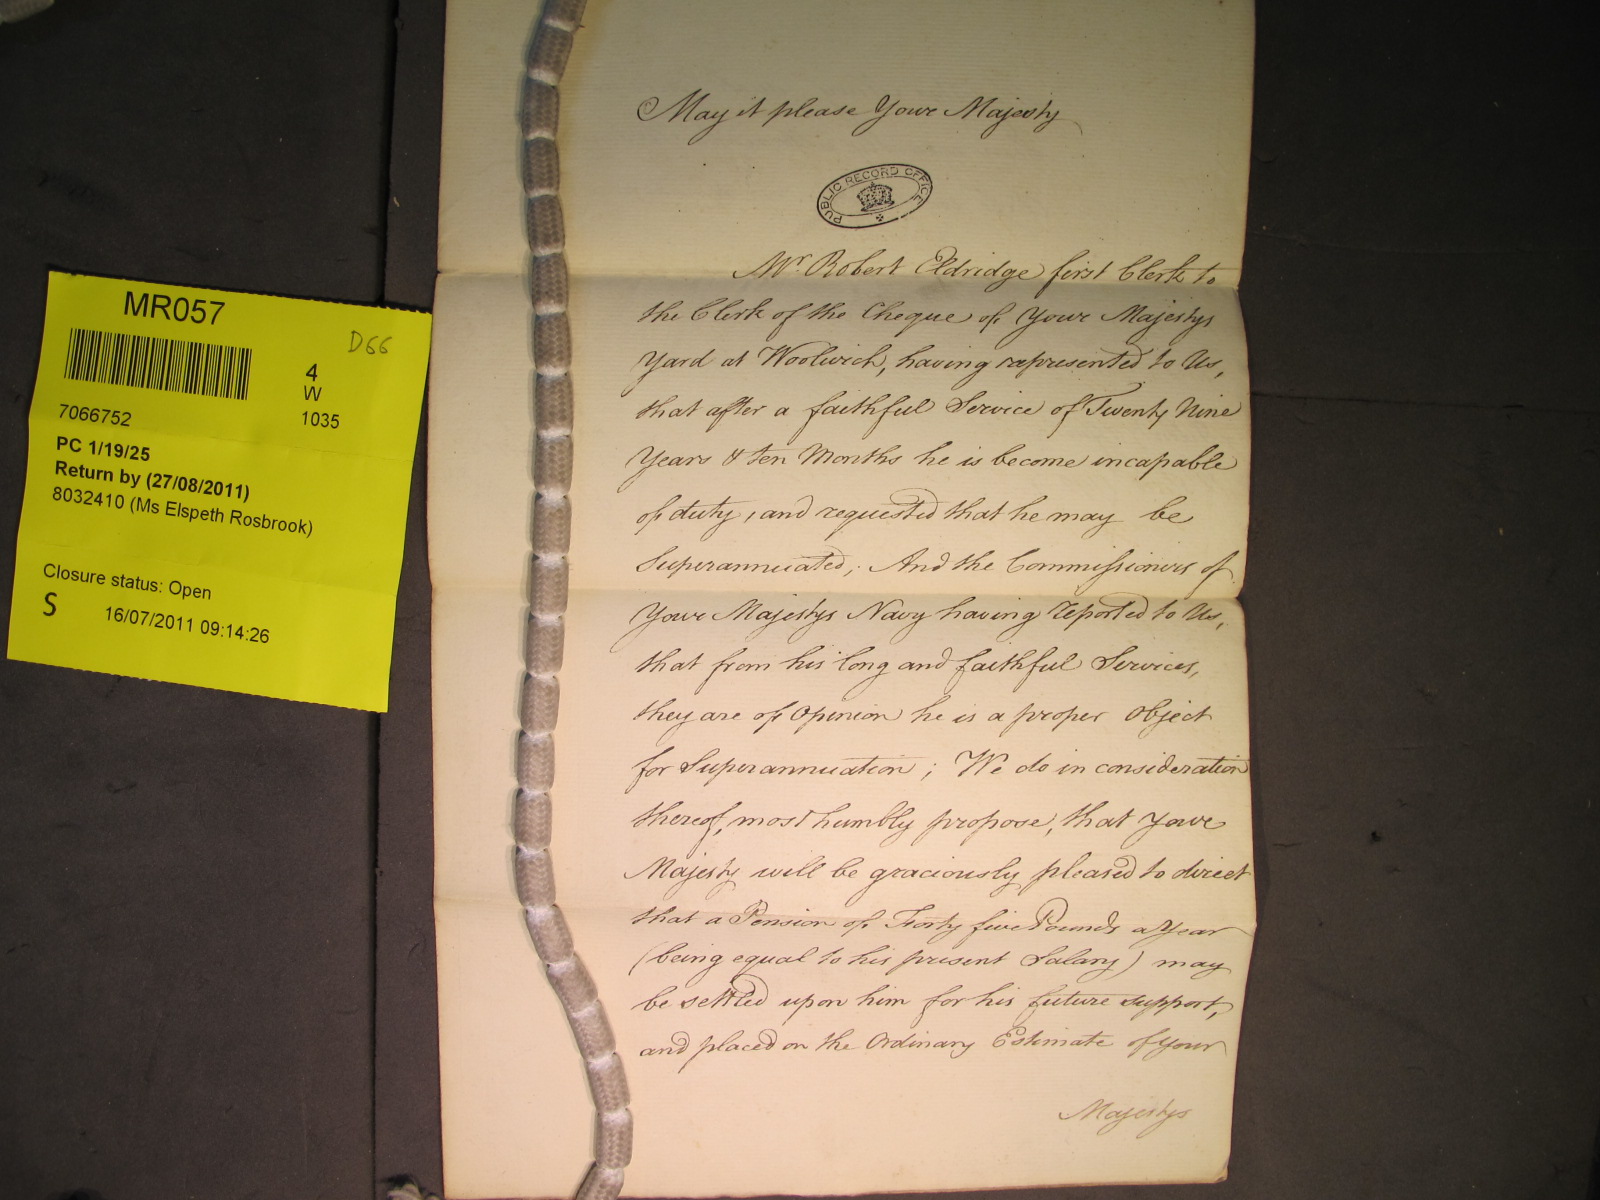 MR057
D66
4
W
7066752
1035
PC 1/19/25
Return by (27/08/2011)
8032410 (Ms Elspeth Rosbrook)
Closure status: Open
S
16/07/2011 09:14:26
May it please Your Majesty
PUBLIC RECORD OFFICE
Mr. Robert Eldridge first Clerk to
the Clerk of the Cheque of Your Majestys
Yard at Woolwich, having represented to Us,
that after a faithful Service of Twenty Nine
Years & ten Months he is become incapable
of duty, and requested that he may be
Superannuated; And the Commissioners of
Your Majestys Navy having reported to Us,
that from his long and faithful Services,
they are of Opinion he is a proper Object
for Superannuation; We do in consideration
thereof, most humbly propose, that Your
Majesty will be graciously pleased to direct
that a Pension of Forty five Pounds a Year
(being equal to his present Salary) may
be settled upon him for his future support,
and placed on the Ordinary Estimate of Your
Majestys